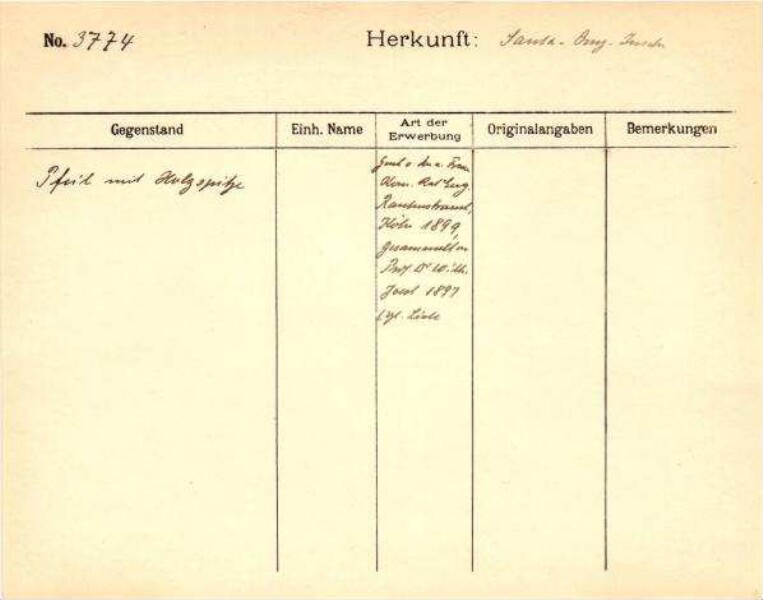 No. 3774
Herkunft: Santa-
Gegenstand
Einh. Name
Art der
Erwerbung
Originalangaben
Bemerkungen
Pfeil mit Holzspitze
Frau
Kom. Rat Eug.
Rautenstrauch,
Köln 1899,
gesammelt v.
Prof. Dr Wilh.
Joest 1897
vgl. Liste